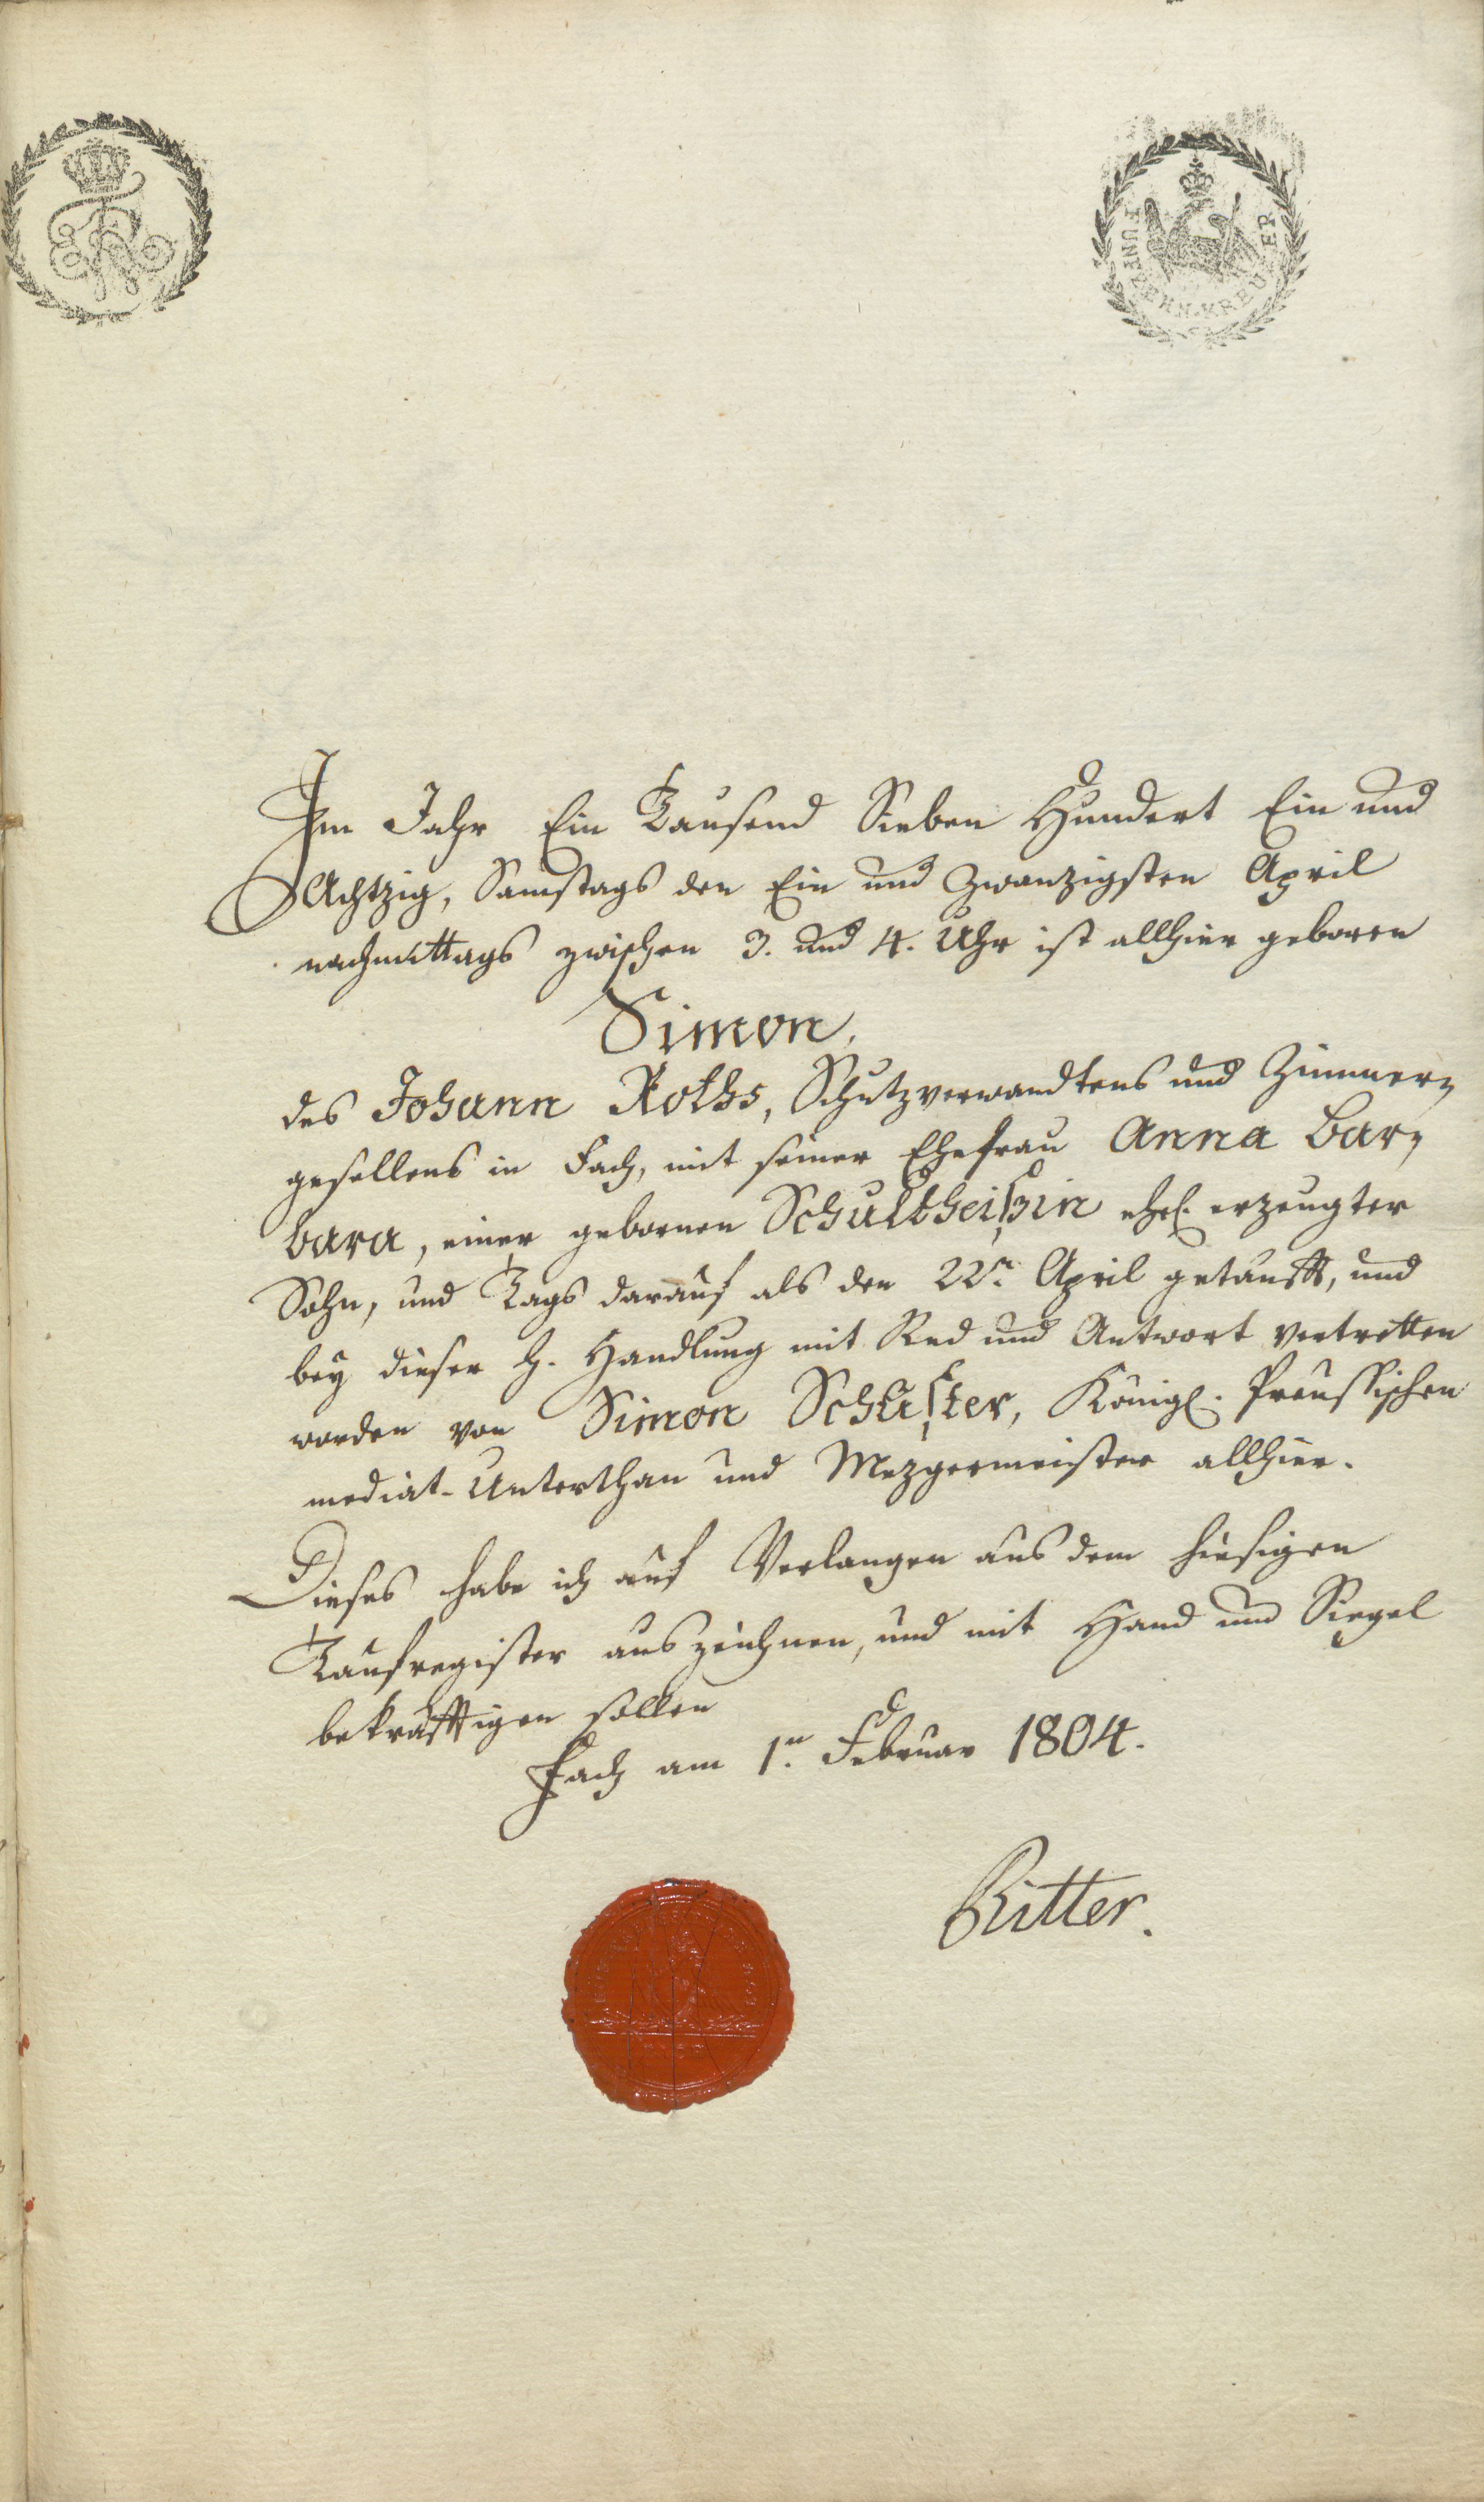 FUNFZEHN-KREUZER
Im Jahr Ein Tausend Sieben Hundert Ein und
Achtzig, Samstags den Ein und Zwanzigsten April
nachmittags zwischen 3. und 4. Uhr ist allhier geboren
Simon,
des Johann Roths, Schutzverwandtens und Zimmer=
gesellens in Fach, mit seiner Ehefrau Anna Bar=
bara, einer gebornen Schultheißin ehel. erzeugter
Sohn, und Tags darauf als den 22n. April getaufft, und
bey dieser h. Handlung mit Red und Antwort vertretten
worden von Simon Schuster, Königl. Preussischen
mediat-Unterthan und Mezgermeister allhier.
Dieses habe ich auf Verlangen aus dem hiesigen
Taufregister auszeichnen, und mit Hand und Siegel
bekräfftigen sollen
Fach am 1n. Februar 1804.
Ritter.